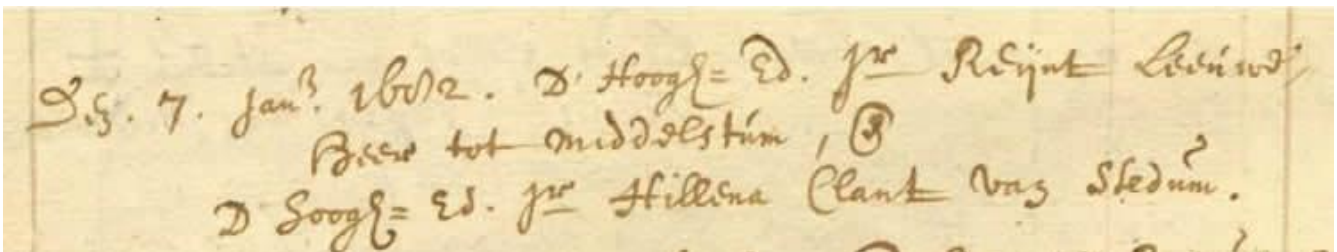 Den. 7. Janu. 1682. D' Hoogh= Ed. Jr Reijnt Leeuwe
Heer tot Middelstum, &
D Hoogh= Ed. Jr Hillena Clant van Stedum.